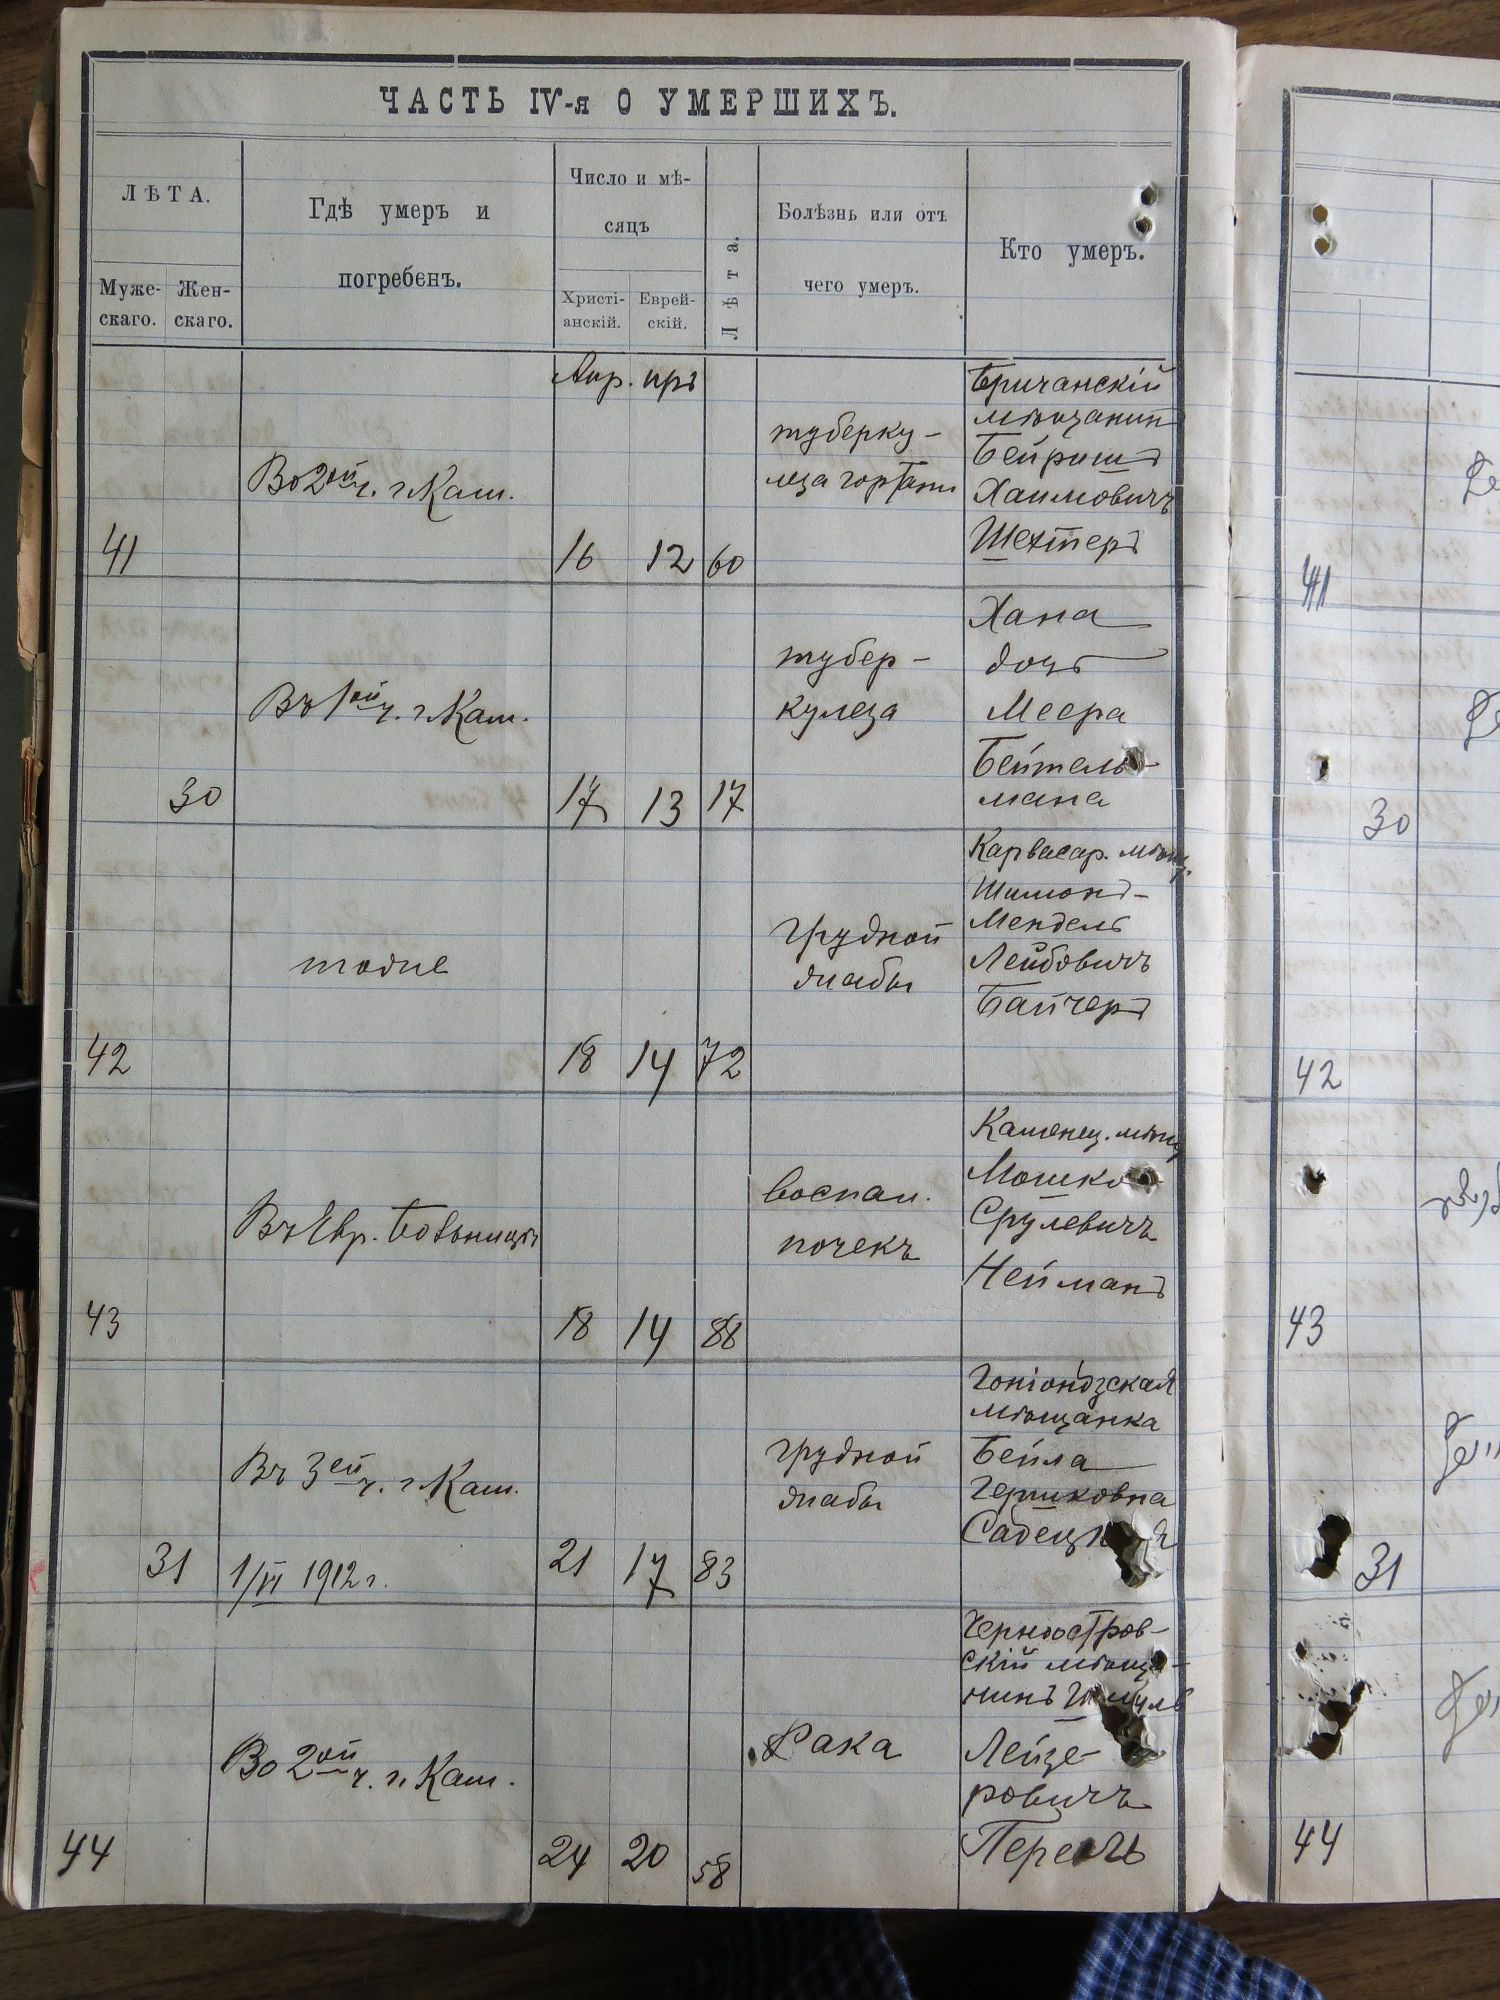 ЧАСТЬ IV-я О УМЕРШИХЪ.
ЛѢТА.
Муже-
скаго.
Жен-
скаго.
Гдѣ умеръ и
погребенъ.
Число и мѣ-
сяцъ
Христі-
анскій.
Еврей-
скій.
Лѣта.
Болѣзнь или отъ
чего умеръ.
Кто умеръ.
Апр.
41
Во 2ой ч. г. Кам.
16
12
60
туберку-
леза гортани
Бричанскій
мѣщанинъ
Бейришъ
Хаимовичъ
Шехтеръ
30
Въ 1ой ч. г. Кам.
17
13
17
тубер-
кулеза
Хана
дочь
Меера
Бейтель-
мана
42
тоже
18
14
72
грудной
жабы
Карвасар. мѣщ.
Шимонъ-
Мендель
Лейбовичъ
Байчеръ
43
Въ Евр. больницѣ
18
14
88
воспал.
почекъ
Каменец. мѣщ.
Мошко
Срулевичъ
Нейманъ
31
Въ 3ей ч. г. Кам.
1/VI 1912 г.
21
17
83
грудной
жабы
Гоніондзская
мѣщанка
Бейла
Гершковна
44
Во 2ой ч. г. Кам.
24
20
58
Рака
Черноостров-
скій мѣща-
нинъ
Лейзе-
ровичъ
41
30
42
43
31
44